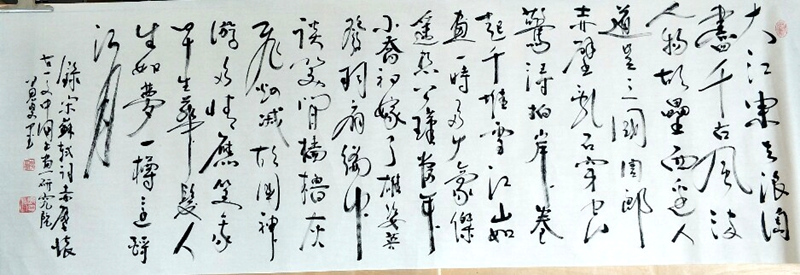 大江東去浪淘
盡千古風流
人物故壘西邊人
道是三國周郎
赤壁亂石穿空
驚濤拍岸卷
起千堆雪江山如
畫一時多少豪傑
遙想公瑾當年
小喬初嫁了雄姿英
發羽扇綸巾
談笑間檣櫓灰
飛煙滅故國神
游多情應笑我
早生華髮人
生如夢一樽還酹
江月
錄宋蘇軾詞赤壁懷
古一文中國書畫研究院